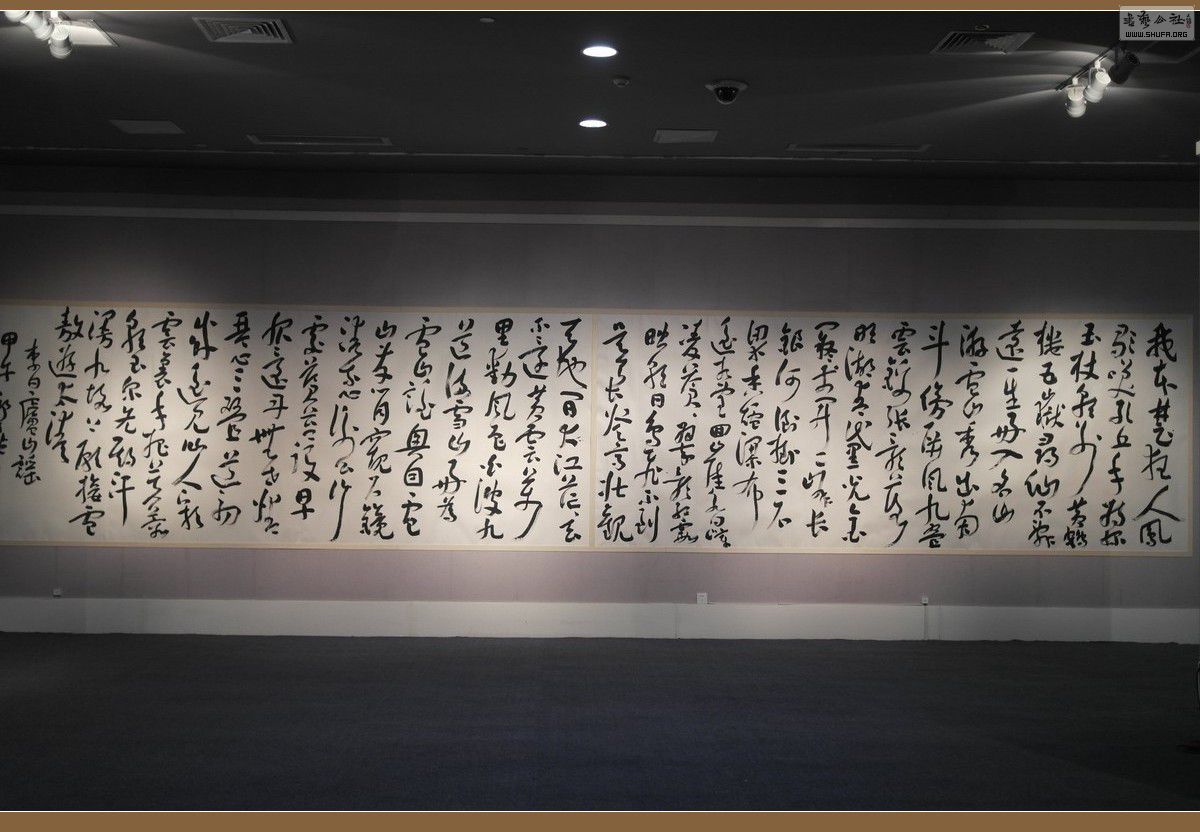 我本楚狂人鳳
歌笑孔丘手持綠
玉杖朝別黃鶴
樓五嶽尋仙不辭
遠一生好入名山
游廬山秀出南
斗傍屏風九疊
雲錦張影落
明湖青黛光金
闕前開二峰長
銀河倒掛三石
梁香爐瀑布
遙相望迴崖沓嶂
凌蒼蒼翠影紅霞
映朝日鳥飛不到
吳天長登高壯觀
天地間大江茫茫去
不還黃雲萬
里動風色白波九
道流雪山好為
廬山謠興因廬
山發閒窺石鏡
清我心謝公行
處蒼苔沒早
服還丹無世情
琴心三疊道初
成遙見仙人彩
雲裏手把芙蓉
朝玉京先期汗
漫九垓上願接盧
敖遊太清
李白廬山謠
甲午
书艺公社
WWW.SHUFA.ORG